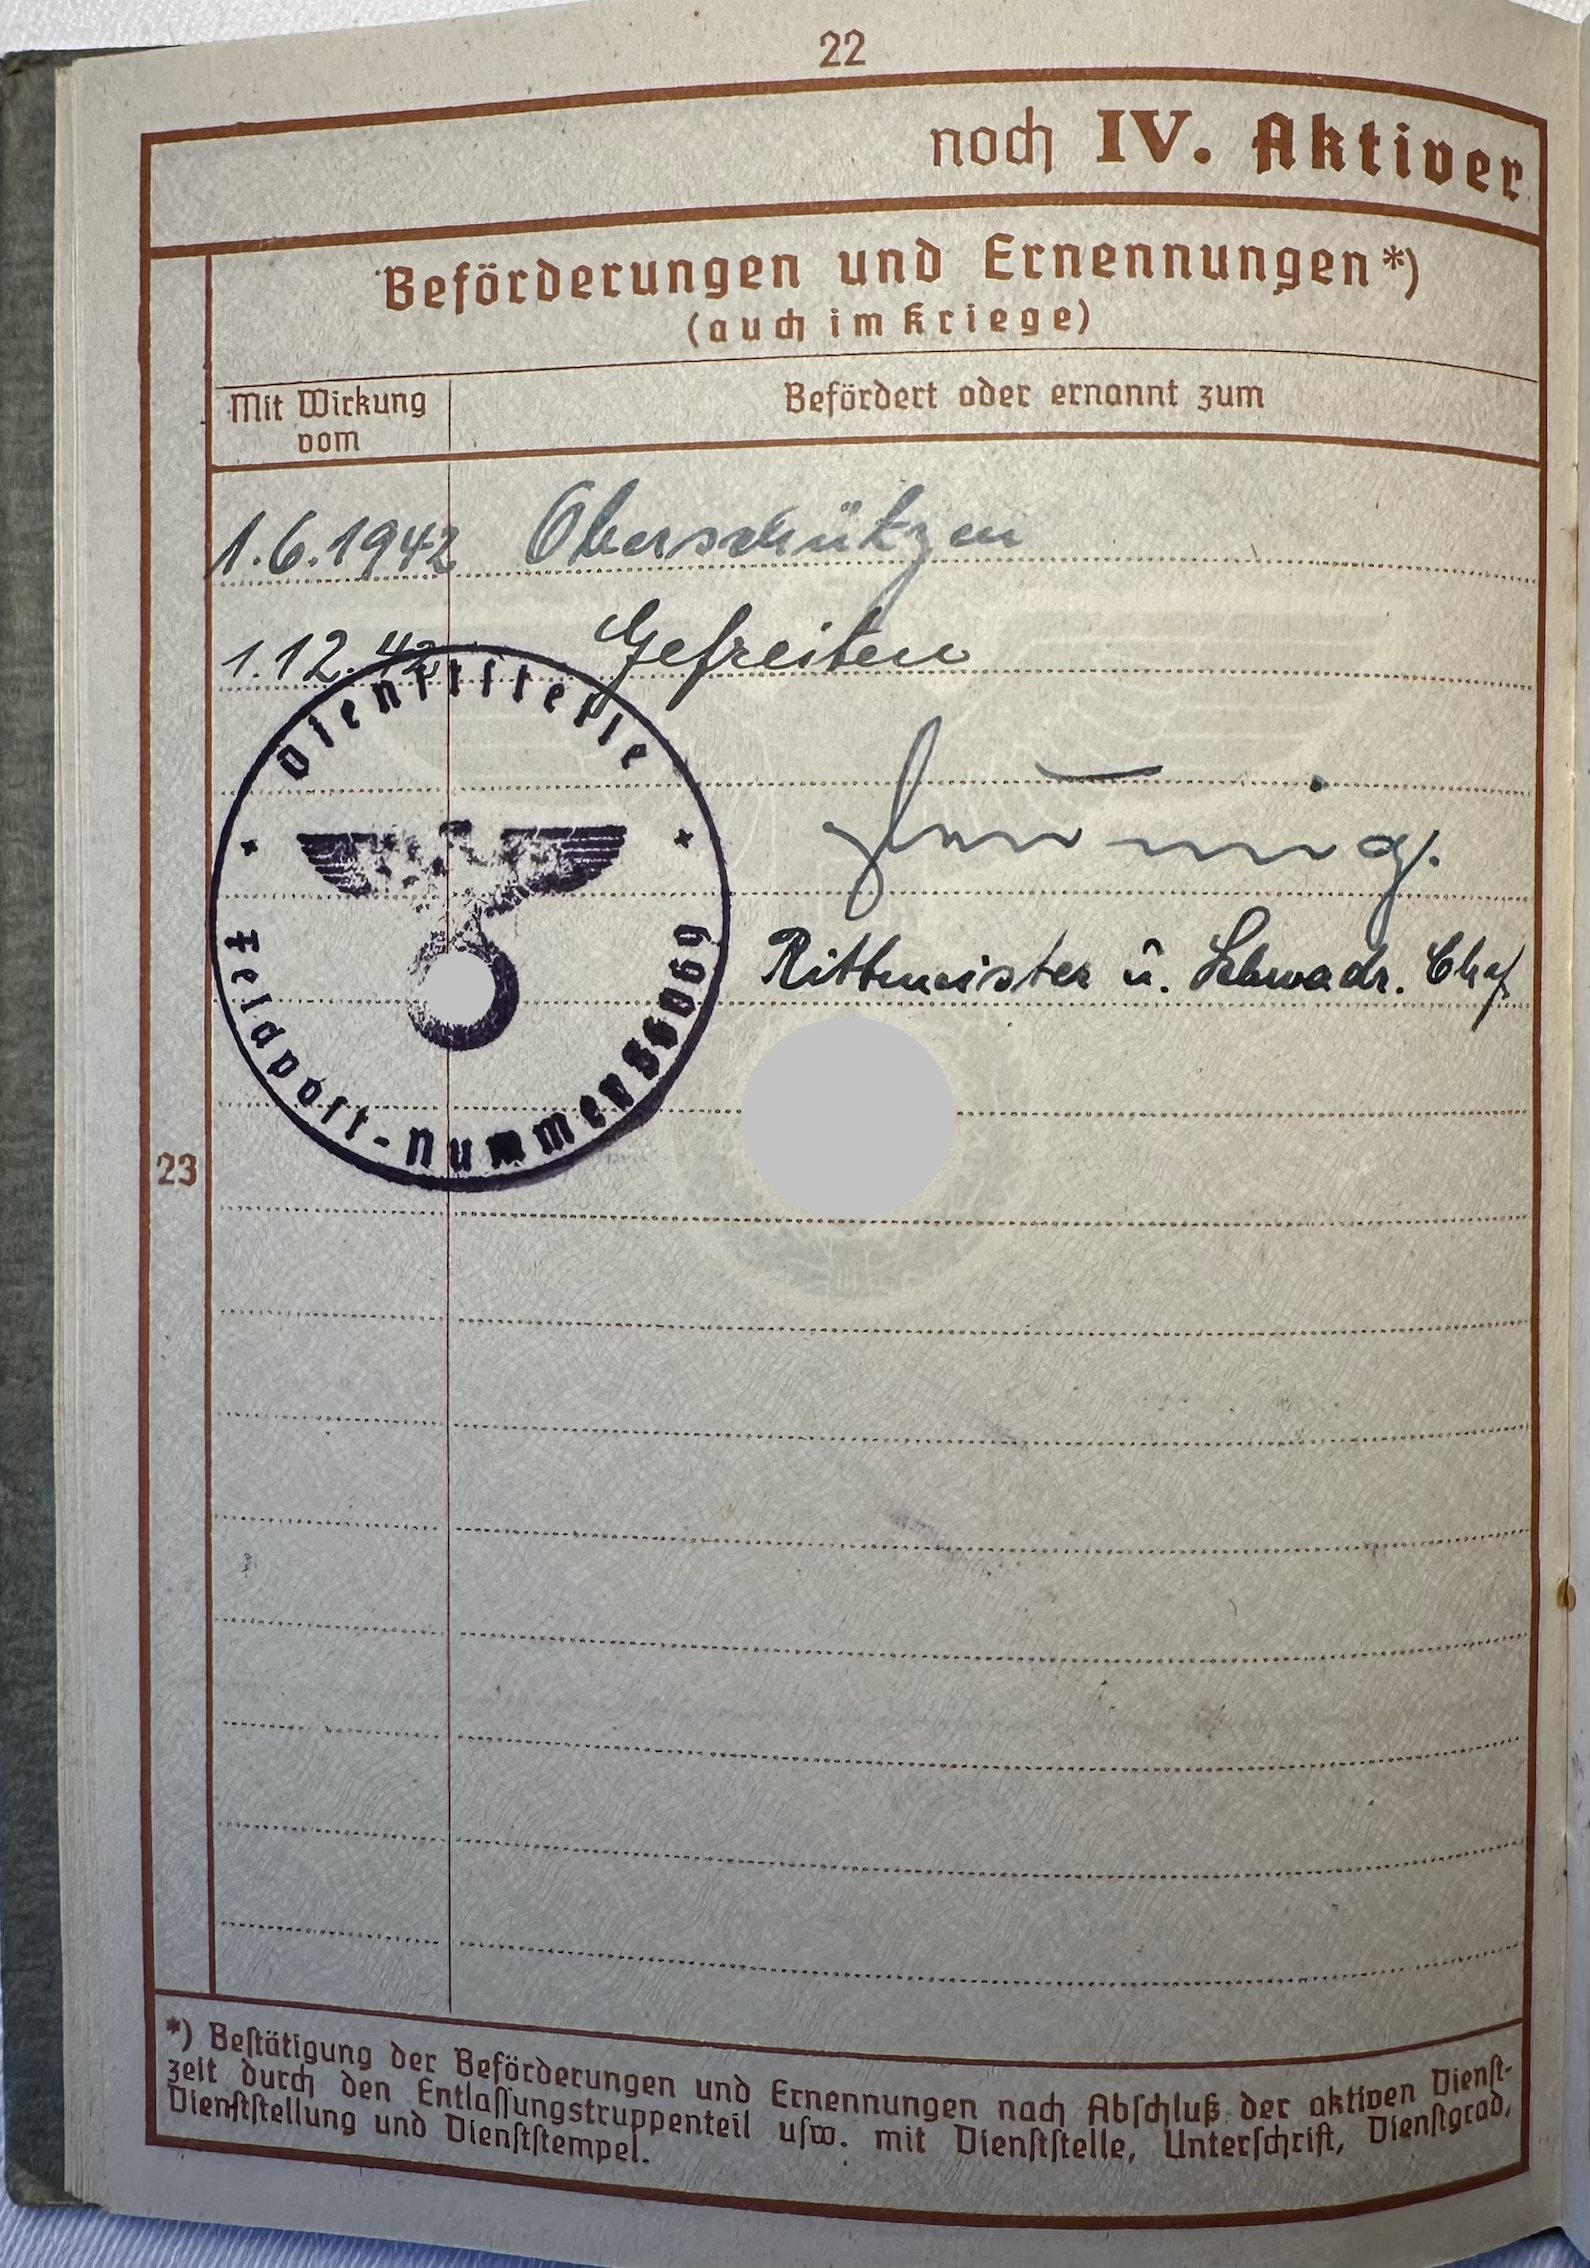 22
noch IV. Aktiver
Beförderungen und Ernennungen*)
(auch im Kriege)
Mit Wirkung
vom
Befördert oder ernannt zum
1.6.1942 Oberschützen
1.12.42 Gefreiten
Dienststelle
Feldpost-Nummer
Rittmeister u. Schwadr. Chef
23
*) Bestätigung der Beförderungen und Ernennungen nach Abschluß der aktiven Dienst-
zeit durch den Entlassungstruppenteil usw. mit Dienststelle, Unterschrift, Dienstgrad,
Dienststellung und Dienststempel.